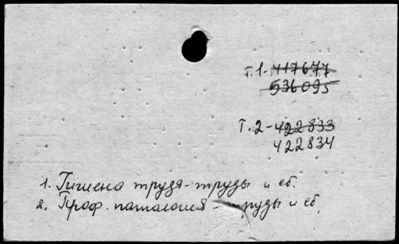 т.1-417677
536095
Т.2-422833
422834
1. Гигиена труда-труды и сб.
2. Проф. патология - труды и сб.